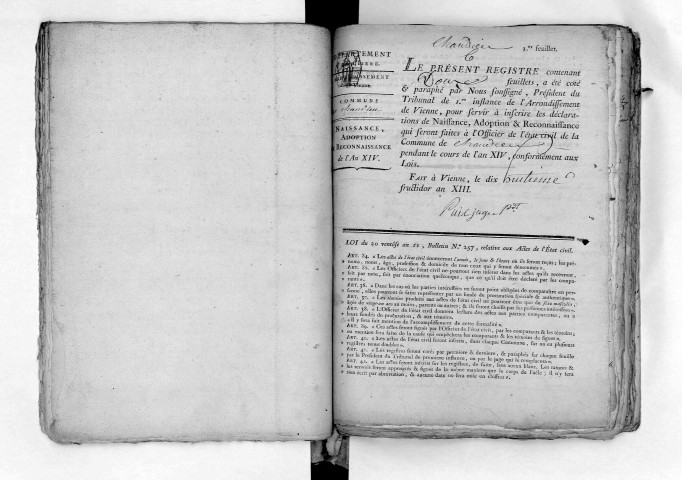 1.er feuillet.
COMMUNE
NAISSANCE,
ADOPTION
RECONNAISSANCE
de l'An XIV.
LE PRÉSENT REGISTRE contenant
Douze feuillets, a été coté
& paraphé par Nous soussigné, Président du
Tribunal de 1.ere instance de l'Arrondissement
de Vienne, pour servir à inscrire les déclara-
tions de Naissance, Adoption & Reconnaissance
qui seront faites à l'Officier de l'état civil de la
Commune de
pendant le cours de l'an XIV, conformément aux
Lois.
FAIT à Vienne, le dix huitième
fructidor an XIII.
LOI du 20 ventôse an 11, Bulletin N.° 257, relative aux Actes de l'État civil.
ART. 34. « Les actes de l'état civil énonceront l'année, le jour & l'heure où ils seront reçus; les pré-
noms, nom, âge, profession & domicile de tous ceux qui y seront dénommés ».
ART. 35. « Les Officiers de l'état civil ne pourront rien insérer dans les actes qu'ils recevront,
soit par note, soit par énonciation quelconque, que ce qu'il doit être déclaré par les compa-
rans ».
ART. 36. « Dans les cas où les parties intéressées ne seront point obligées de comparaître en per-
sonne, elles pourront se faire représenter par un fondé de procuration spéciale & authentique ».
ART. 37. « Les témoins produits aux actes de l'état civil ne pourront être que du sexe masculin,
âgés de vingt-un ans au moins, parens ou autres; & ils seront choisis par les personnes intéressées ».
ART. 38. « L'Officier de l'état civil donnera lecture des actes aux parties comparantes, ou à
leurs fondés de procuration, & aux témoins.
« Il y sera fait mention de l'accomplissement de cette formalité ».
ART. 39. « Ces actes seront signés par l'Officier de l'état civil, par les comparans & les témoins;
ou mention sera faite de la cause qui empêchera les comparans & les témoins de signer ».
ART. 40. « Les actes de l'état civil seront inscrits, dans chaque Commune, sur un ou plusieurs
registres tenus doubles ».
ART. 41. « Les registres seront cotés par première & dernière, & paraphés sur chaque feuille
par le Président du Tribunal de première instance, ou par le juge qui le remplacera ».
ART. 42. « Les actes seront inscrits sur les registres, de suite, sans aucun blanc. Les ratures &
les renvois seront approuvés & signés de la même manière que le corps de l'acte; il n'y sera
rien écrit par abréviation, & aucune date ne sera mise en chiffres ».